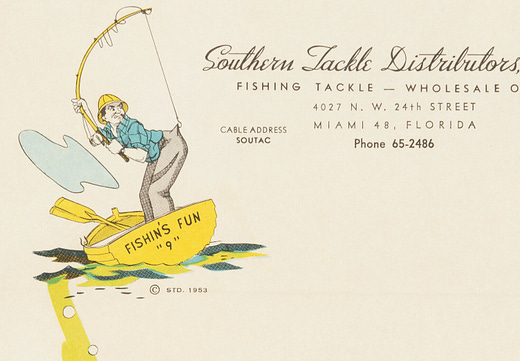 Southern Tackle Distributors,
FISHING TACKLE — WHOLESALE O
4027 N. W. 24th STREET
MIAMI 48, FLORIDA
CABLE ADDRESS
SOUTAC
Phone 65-2486
FISHIN'S FUN
"9"
© STD. 1953